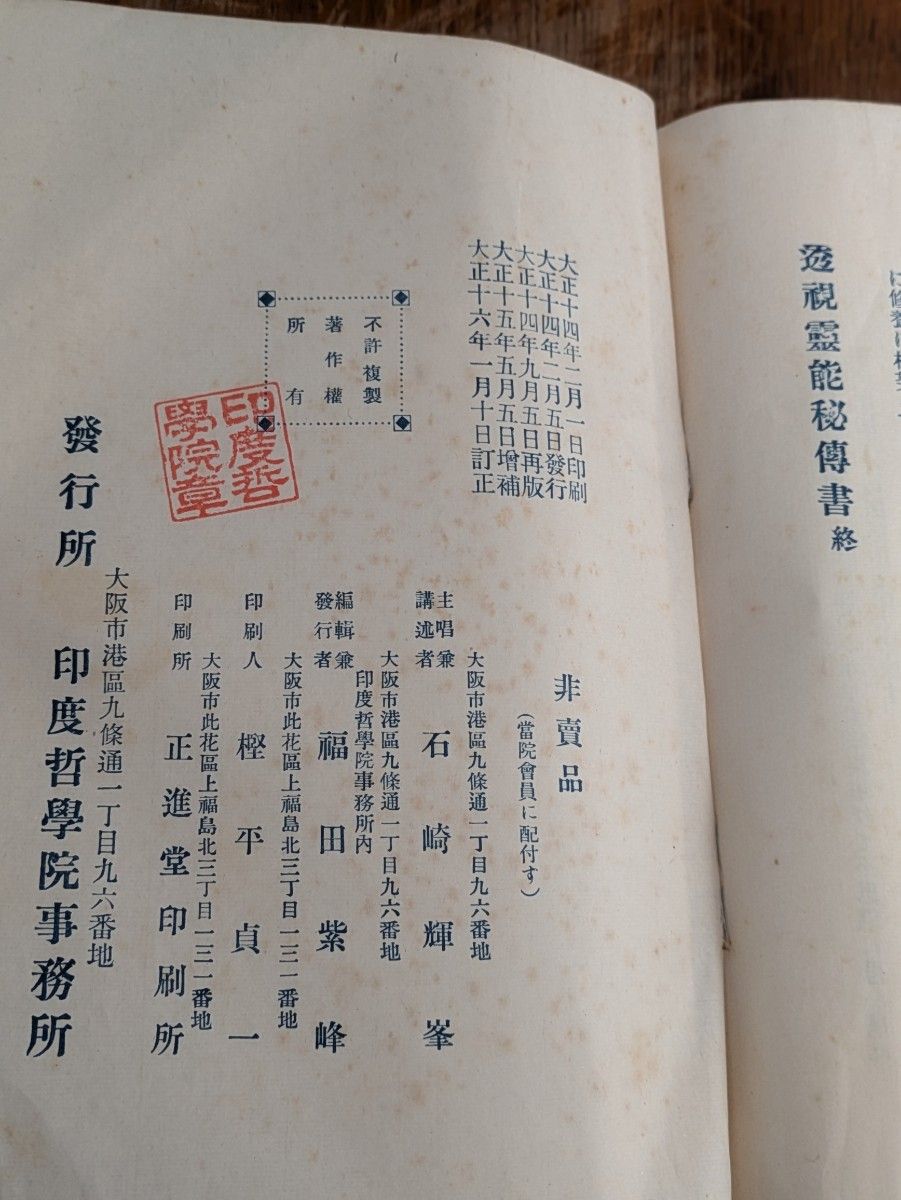 透視靈能秘傳書 終
大正十四年二月一日印刷
大正十四年二月五日發行
大正十四年九月五日再版
大正十五年五月五日增補
大正十六年一月十日訂正
不許複製
著作權
所有
印度哲
學院章
非賣品
(當院會員に配付す)
大阪市港區九條通一丁目九六番地
主唱兼
講述者 石崎輝峯
大阪市港區九條通一丁目九六番地
印度哲學院事務所內
編輯兼
發行者 福田紫峰
大阪市此花區上福島北三丁目一三一番地
印刷人 樫平貞一
大阪市此花區上福島北三丁目一三一番地
印刷所 正進堂印刷所
大阪市港區九條通一丁目九六番地
發行所 印度哲學院事務所